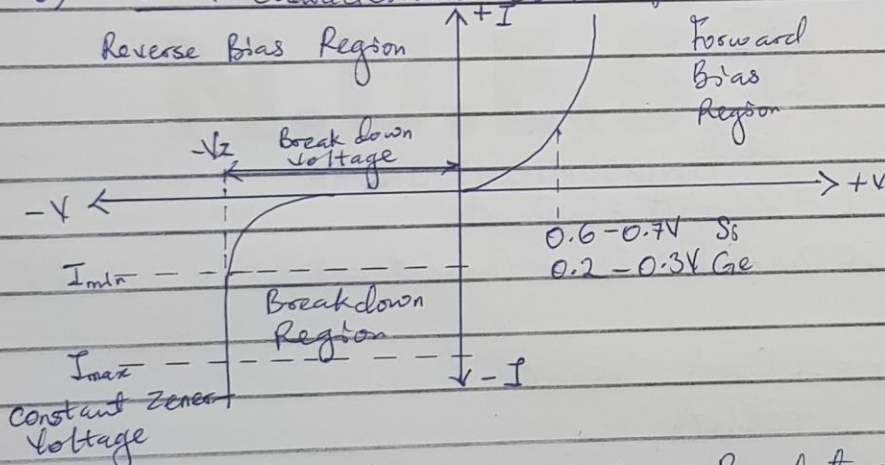 +I
Reverse Bias Region
Forward
Bias
Region
-Vz
Break down
Voltage
-V
+V
0.6-0.7V Si
0.2-0.3V Ge
Imin
Breakdown
Region
Imax
-I
Constant Zener
Voltage